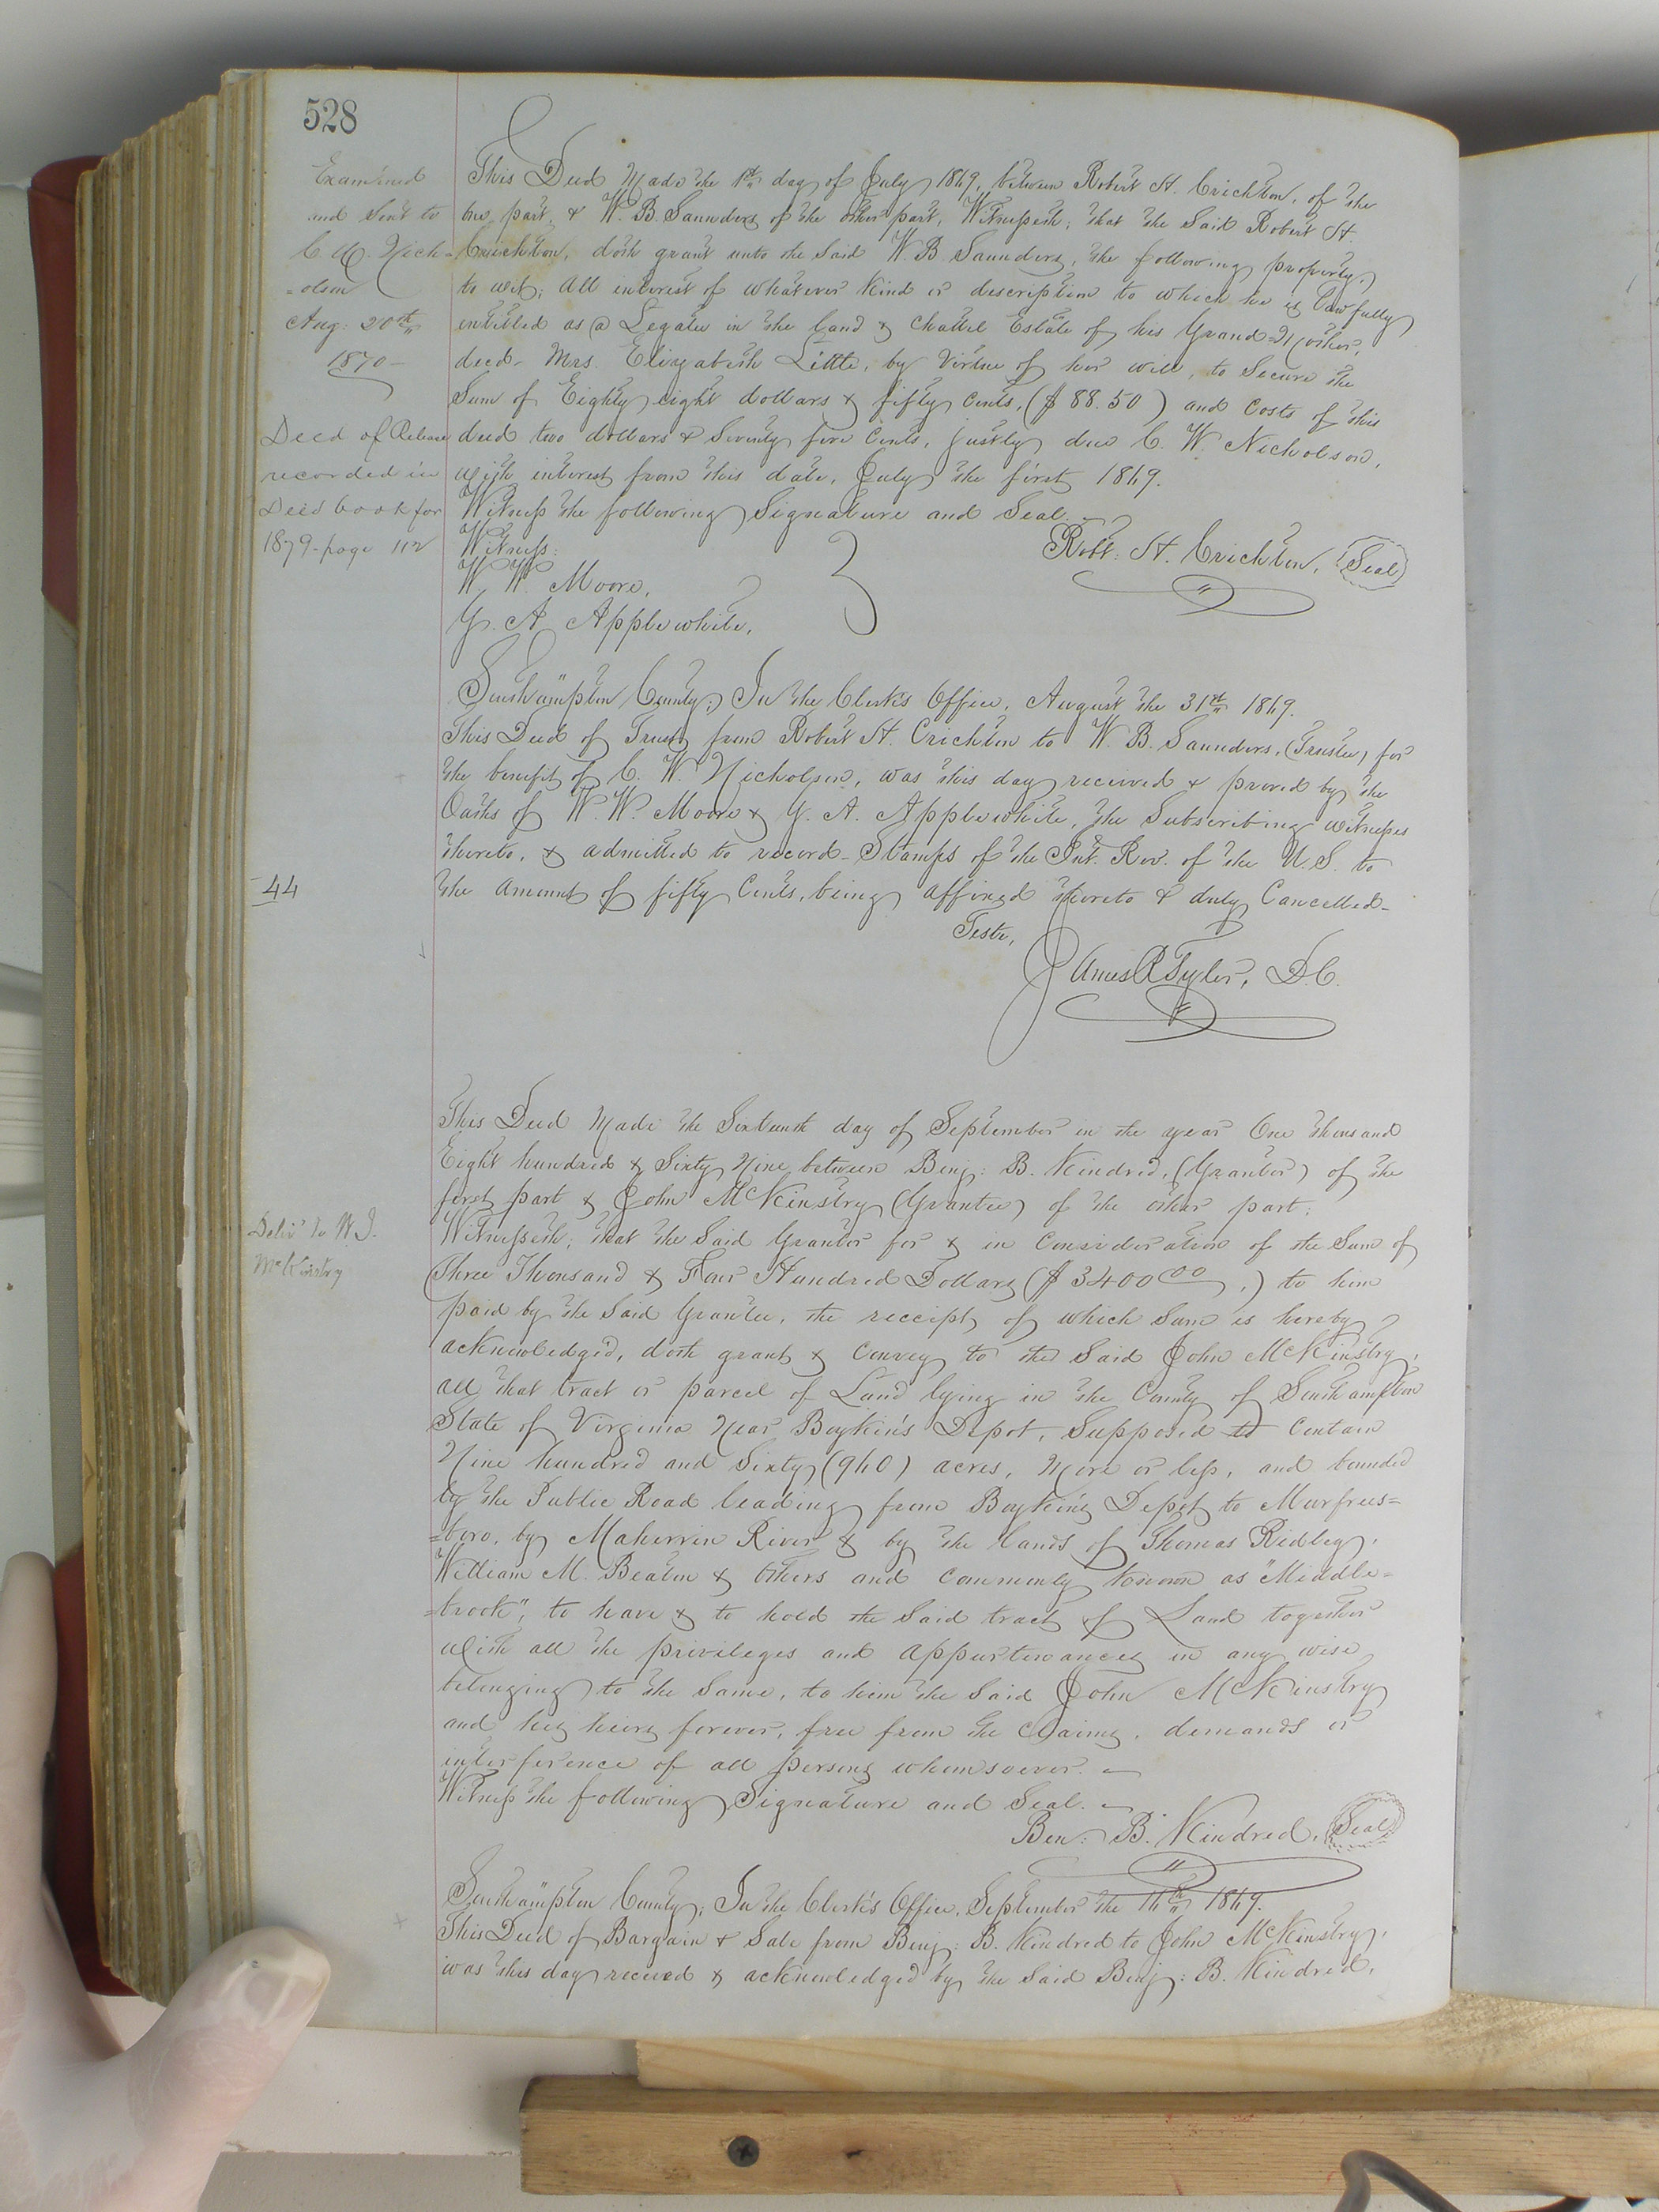 528
Examined
and Sent to
C. W. Nich-
=olson
Aug: 20th
1870-
Deed of Release
recorded in
Deed book for
1879-page 112
This Deed Made the 1st day of July 1869, between Robert H. Crichton, of the
one part, & W. B. Saunders of the other part, Witnesseth; that the Said Robert H.
Crichton, doth grant unto the Said W. B. Saunders, the following property,
to wit; All interest of whatever Kind or description to which he is lawfully
entitled as a Legatee in the land & chattel Estate of his Grand-Mother,
decd- Mrs. Elizabeth Little, by Virtue of her will, to Secure the
Sum of Eighty eight dollars & fifty Cents, ($ 88.50) and Costs of this
deed two dollars & Seventy five Cents, justly due C. W. Nicholson,
with interest from this date, July the first 1869.
Witness the following Signature and Seal.
Robt. H. Crichton, Seal
Witness:
W. W. Moore,
G. A. Applewhite,
Southampton County; In the Clerk's Office, August the 31st 1869.
This Deed of Trust from Robert H. Crichton to W. B. Saunders, (Trustee) for
the benefit of C. W. Nicholson, was this day received & proved by the
Oaths of W. W. Moore & G. A. Applewhite, the Subscribing witnesses
thereto, & admitted to record- Stamps of the Int. Rev. of the U. S. to
44
the amount of fifty Cents, being affixed thereto & duly Cancelled-
Teste,
James R Tyler, D.C.
This Deed Made the Sixteenth day of September in the year One thousand
Eight hundred & Sixty Nine between Benj: B. Kindred, (Grantor) of the
first part & John McKinstry (Grantee) of the other part;
Deliv'd to W. J.
McKinstry
Witnesseth; that the Said Grantor for & in Consideration of the Sum of
Three Thousand & Four Hundred Dollars ($ 3400 00.) to him
paid by the Said Grantee, the receipt of which Sum is hereby
acknowledged, doth grant & Convey to the Said John McKinstry,
all that tract or parcel of Land lying in the County of Southampton
State of Virginia Near Boykin's Depot, Supposed to Contain
Nine hundred and Sixty (960) acres, More or less, and bounded
by the Public Road leading from Boykin's Depot to Murfrees=
=boro, by Maherrin River & by the lands of Thomas Ridley,
William M. Beaton & Others and Commonly Known as "Middle=
=brook", to have & to hold the Said tract of Land together
with all the privileges and appurtenances in any wise
belonging to the Same, to him the Said John McKinstry
and his heirs forever, free from the Claims, demands or
interference of all persons whomsoever.
Witness the following Signature and Seal.
Ben: B. Kindred, Seal
Southampton County; In the Clerk's Office, September the 16th 1869.
This Deed of Bargain & Sale from Benj: B. Kindred to John McKinstry,
was this day received & acknowledged by the Said Benj: B. Kindred,